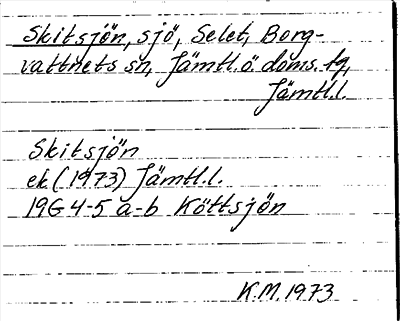 Skitsjön, sjö, Selet, Borg-
vattnets sn, Jämtl. ö. doms. tg,
Jämtl.l.
Skitsjön
ek (1973) Jämtl.l.
19G 4-5 a-b Köttsjön
K.M. 1973